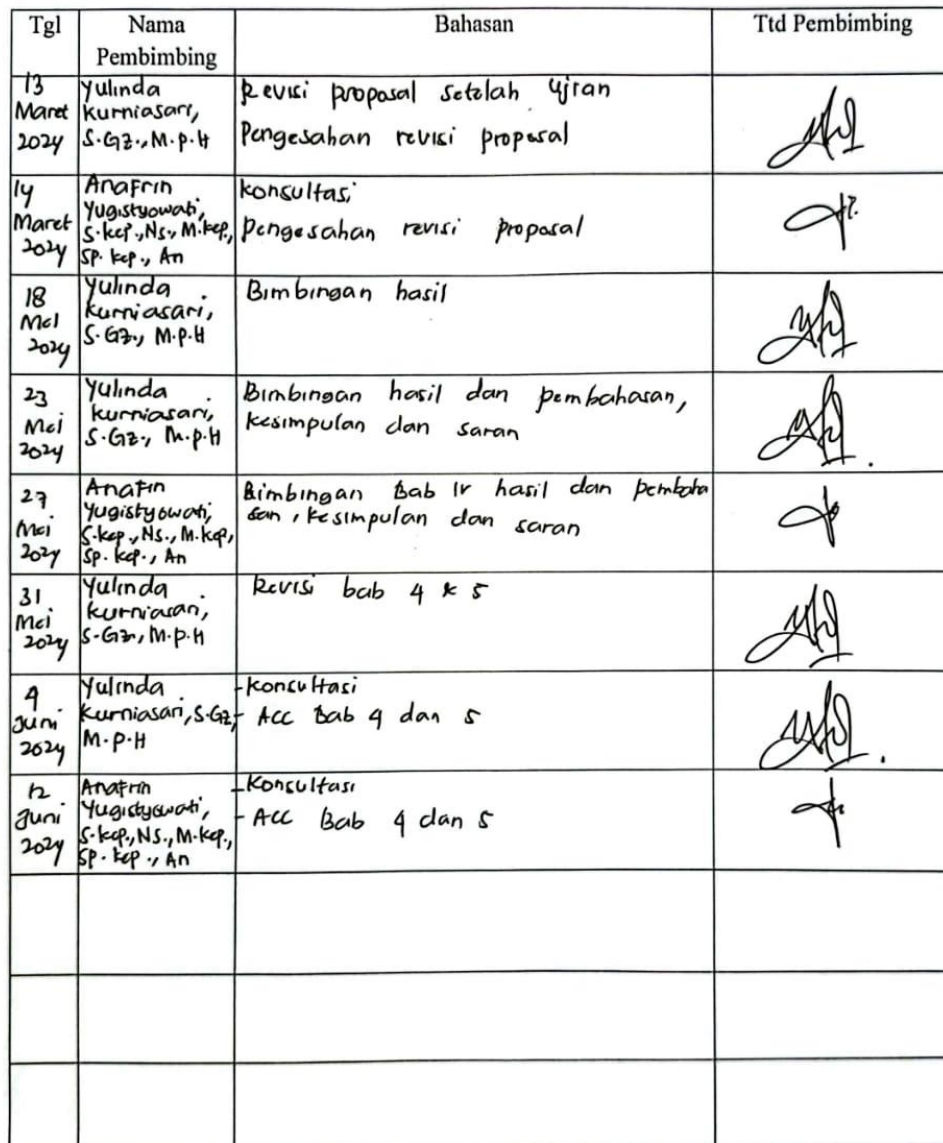 Tgl
Nama
Pembimbing
Bahasan
Ttd Pembimbing
13
Maret
2024
Yulinda
Kurniasari,
S.Gz., M.P.H
Revisi proposal setelah ujian
Pengesahan revisi proposal
14
Maret
2024
Anafrin
Yugistyowati,
S.Kep., Ns., M.Kep.,
Sp. Kep., An
Konsultasi
Pengesahan revisi proposal
18
Mei
2024
Yulinda
Kurniasari,
S.Gz., M.P.H
Bimbingan hasil
23
Mei
2024
Yulinda
Kurniasari,
S.Gz., M.P.H
Bimbingan hasil dan pembahasan,
Kesimpulan dan saran
27
Mei
2024
Anafrin
Yugistyowati,
S.Kep., Ns., M.Kep,
Sp. Kep., An
Bimbingan Bab IV hasil dan pembaha
san, kesimpulan dan saran
31
Mei
2024
Yulinda
Kurniasari,
S.Gz, M.P.H
Revisi bab 4 & 5
4
Juni
2024
Yulinda
Kurniasari, S.Gz,
M.P.H
- Konsultasi
- ACC Bab 4 dan 5
12
Juni
2024
Anafrin
Yugistyowati,
S.Kep., NS., M.Kep.,
SP. Kep., An
- Konsultasi
- ACC Bab 4 dan 5